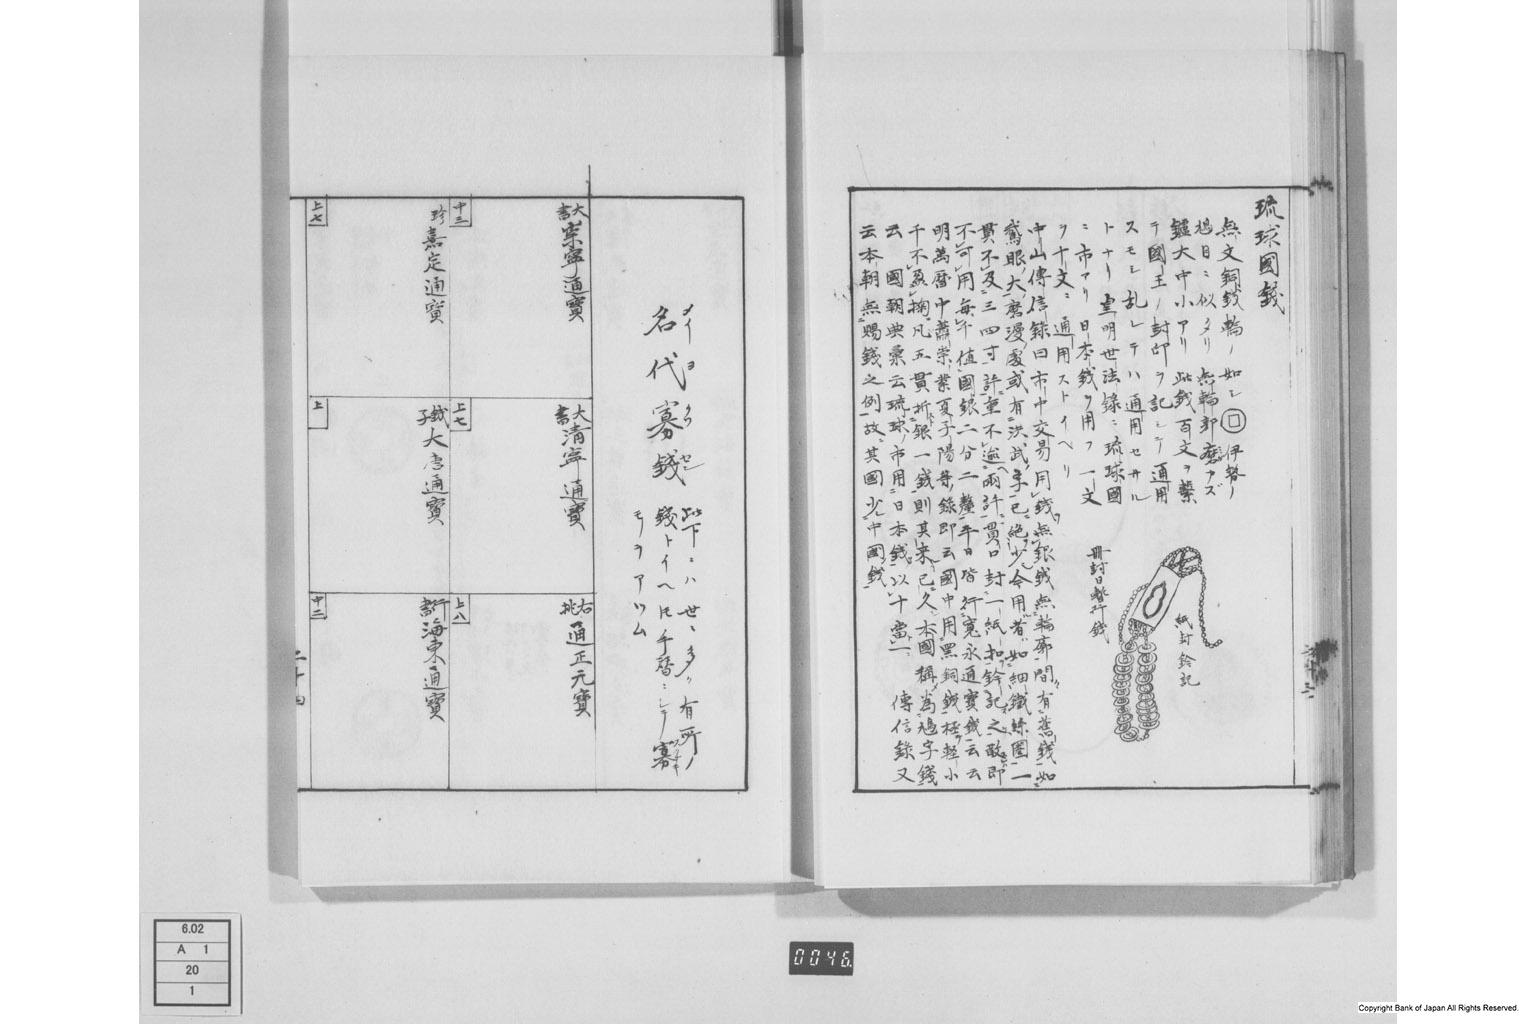 琉球國錢
無文銅錢輪ノ如シ 伊勢ノ
鳩目ニ似タリ 無輪郭磨カズ
鑢大中小アリ 此錢百文ヲ繫
テ國王ノ封印ヲ記シテ通用
スモシ乱レテハ通用セサル
トナリ 皇明世法錄ニ琉球國
ニ市アリ日本錢ヲ用フ一文
ヲ十文ニ通用ストイヘリ
紙封鈐記
冊封日敷行錢
中山傳信錄曰市中交易用錢無銀錢無輪廓間有舊錢如
鵞眼大磨漫處或有洪武字已絕少今用者如細鐵絲圈一
貫不及三四寸許重不逾兩許貫口封一紙扣鈐記之散即
不可用每千值國銀二分二釐平日皆行寬永通寶錢云云
明萬曆中蕭崇業夏子陽等錄即云國中用黑銅錢極輕小
千不盈掬凡五貫折銀一錢則其來已久本國稱爲鳩字錢
云 國朝典彙云琉球ノ市用日本錢以十當一 傳信錄又
云本朝無賜錢之例故其國少中國錢
名代寡錢 此下ニハ世ニ多ク有所ノ
錢トイヘ𪜈手替ニシテ寡
モヲアツム
大書 崇寧通寶
大書 清寧通寶
右挑 通正元寶
中三
珍 嘉定通寶
上七
鉄子 大唐通寶
上八
行書 海東通寶
上七
上
中二
二十四
6.02
A 1
20
1
0046
Copyright Bank of Japan All Rights Reserved.